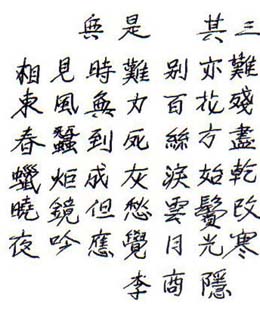 無是 其三
相見時難別亦難
東風無力百花殘
春蠶到死絲方盡
蠟炬成灰淚始乾
曉鏡但愁雲鬢改
夜吟應覺月光寒
李商隱